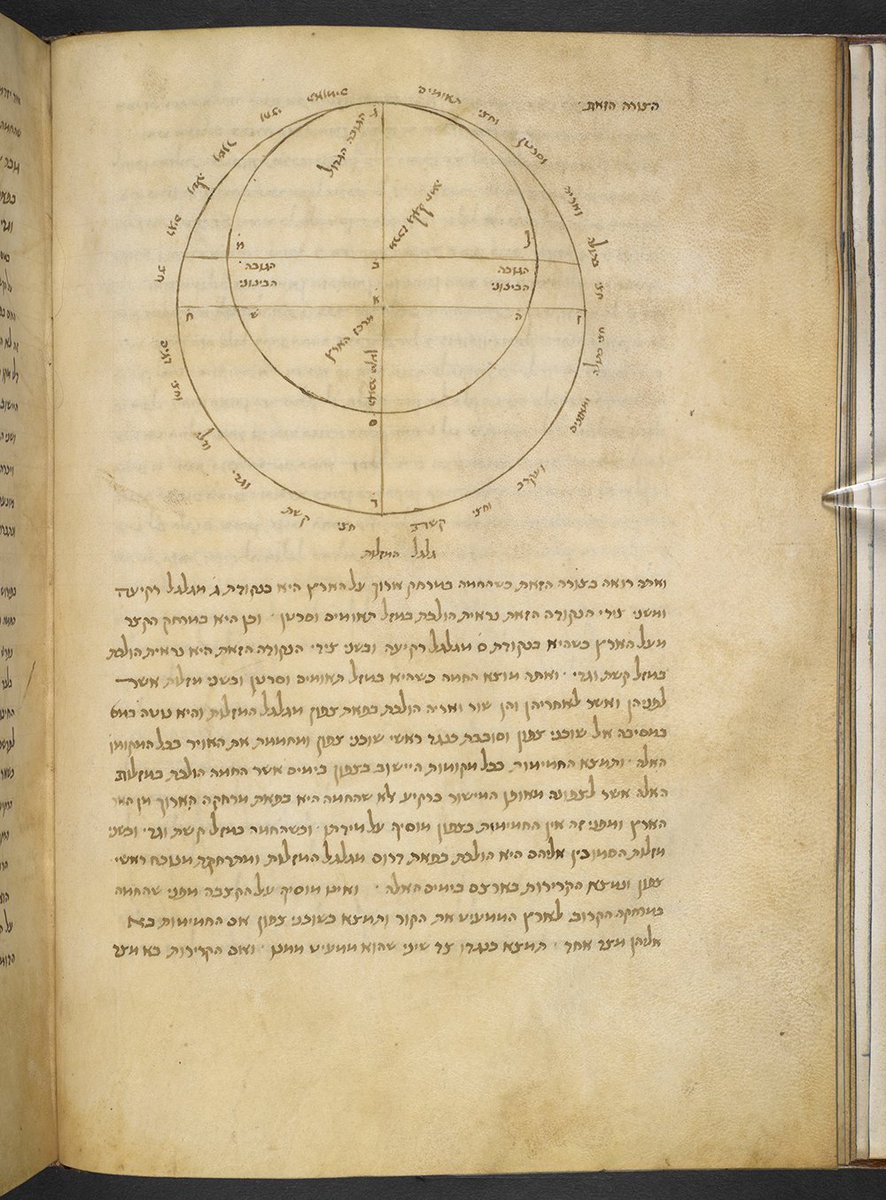 הצורה הזאת
תאומים
וחצי
וסרטן
ואריה
חצי בתולה
ומאזנים
ועקרב
וחצי
קשת
חצי קשת
וגדי
ודלי
הגובה הגדול
ג
מ
ל
ב
הגובה הבינוני
הגובה הבינוני
א
ה
ז
מרכז הארץ
ס
ד
גלגל המזלות
ואתה רואה בצורה הזאת כשהחמה במרחק ארוך על הארץ היא בנקודת ג מגלגל רקיעה
ומשני צידי הנקודה הזאת נראית הולכת במזל תאומים וסרטן וכן היא במרחק הקצר
מעל הארץ כשהיא בנקודת ס מגלגל רקיעה ובשני צידי הנקודה הזאת היא נראית הולכת
במזל קשת וגדי ואתה מוצא החמה כשהיא במזל תאומים וסרטן ובשני מזלות אשר
לפניהן ואשר לאחריהן והן שור ואריה הולכת בפאת צפון מגלגל המזלות והיא נוטה
במסיבה אל שוכני צפון וסובבת כנגד ראשי שוכני צפון ומחממת את האויר בכל המקומות
האלה ותמצא החמימות בכל מקומות היישוב בצפון בימים אשר החמה הולכת במזלות
האלה אשר לצפונה מאופן המישור ברקיע לא שהחמה היא בפאת מרחקה הארוך מן
הארץ ומפני זה אין החמימות בצפון מוסיף על מידתן וכשהחמה במזל קשת וגדי ובשני
מזלות הסמוכין אליהם היא הולכת בפאת דרום מגלגל המזלות ומתרחקת מנוכח ראשי
צפון ונמצא הקרירות בארצם בימים האלה ואינו מוסיף על הקצבה מפני שהחמה
במרחקה הקרוב לארץ הממעיט את הקור ותמצא בשוכני צפון אם החמימות בא
אליהן מצד אחד תמצא כנגדו צד שיני שהוא ממעיט ממנו ואם הקרירות בא מצד